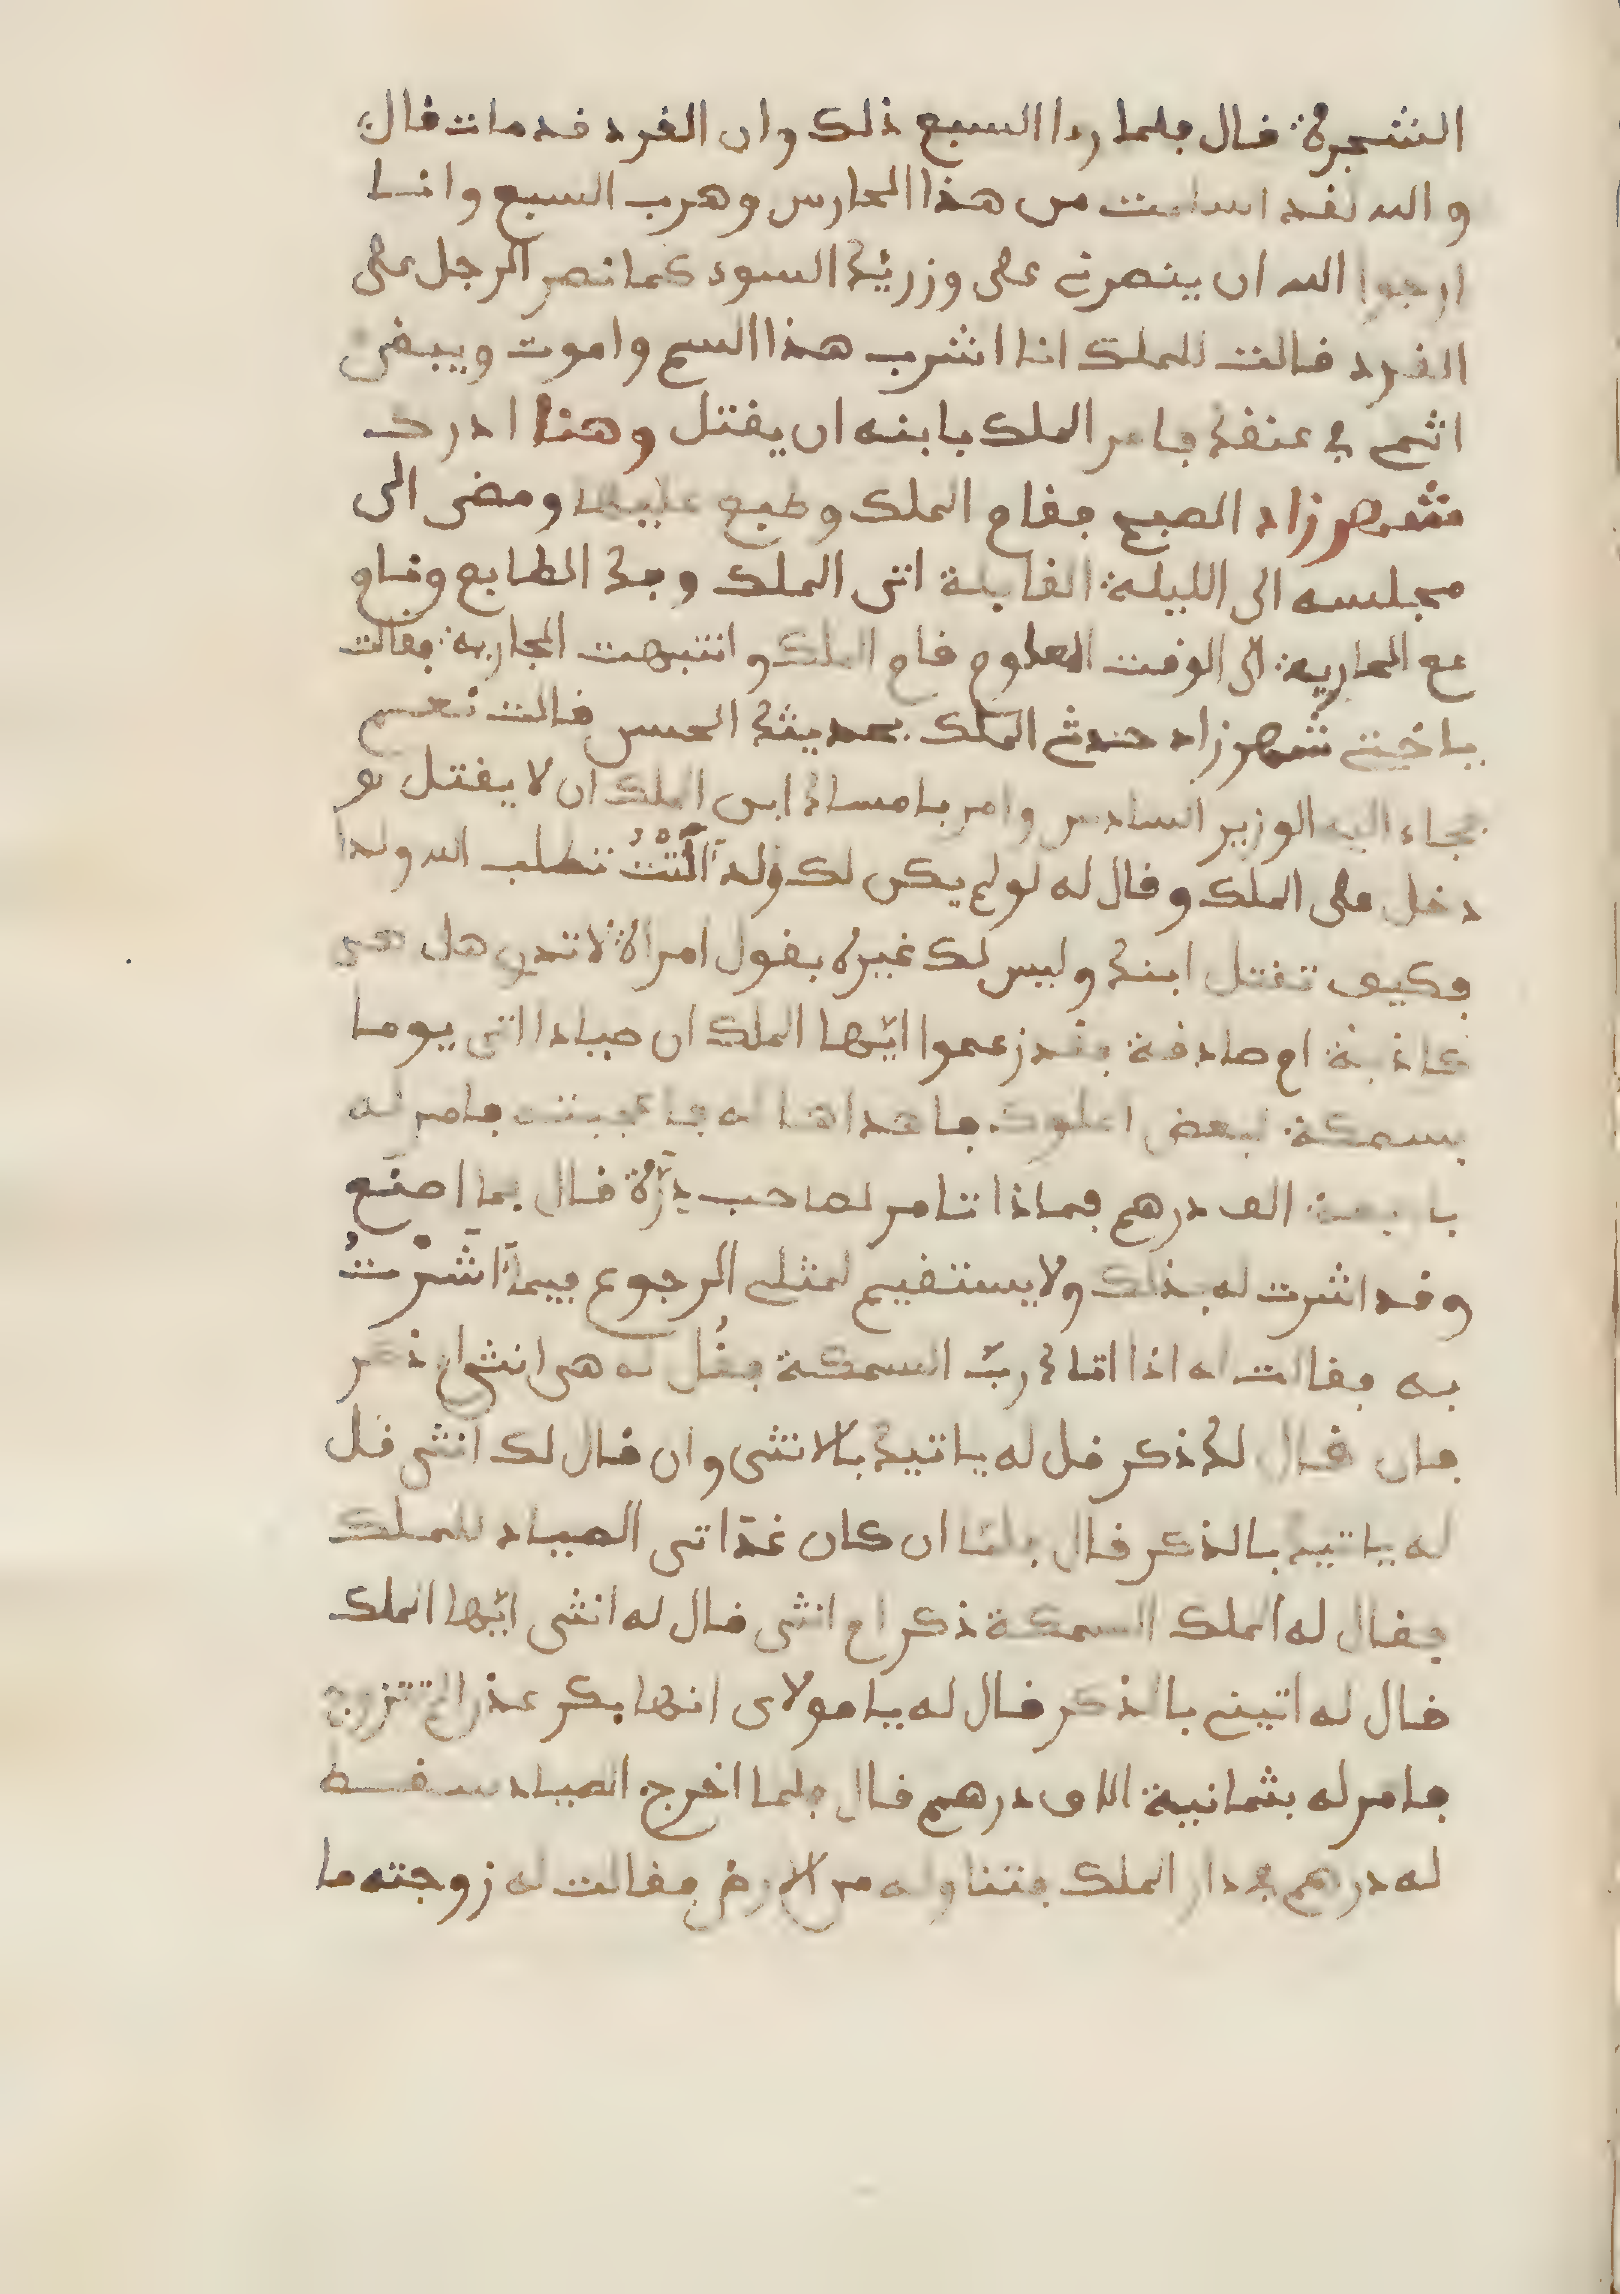 الشجرة قال فلما رءا السبع ذلك وان القرد قد مات قال
والله لقد اسلمت من هذا الحارس وهرب السبع وانا
ارجوا الله ان ينصرني على وزرئك السود كما نصر الرجل على
القرد قالت للملك انا اشرب هذا السم واموت ويبقى
اثمى في عنقك فامر الملك بابنه ان يقتل وهنا ادرك
شهرزاد الصبح فقام الملك وطبع عليها ومضى الى
مجلسه الى الليلة القابلة اتى الملك وفك الطابع ونام
مع الجارية الى الوقت المعلوم قام الملك وانتبهت الجارية فقالت
ياختي شهرزاد حدث الملك بحديثك الحسن قالت نعم
فجاء اليه الوزير السادس وامر بامساك ابن الملك ان لا يقتل
دخل على الملك وقال له لو لم يكن لك ولد الكنت تطلب الله ولدا
فكيف تقتل ابنك وليس لك غيره بقول امراة لا تدرى هل هي
كاذبة ام صادقة فقد زعموا ايها الملك ان صيادا اتى يوما
بسمكة لبعض الملوك فاهداها له فاعجبته فامر له
باربعة الف درهم فماذا تامر لصاحب درة قال بما اصنع
وقد اشرت له بذلك ولا يستقيم لمثلى الرجوع فيما اشرت
به فقالت له اذا اتاك رب السمكة فقل له هى انثى ام ذكر
فان قال لك ذكر قل له ياتيك بالانثى وان قال لك انثى قل
له ياتيك بالذكر قال فلما ان كان غدا اتى الصياد للملك
فقال له الملك السمكة ذكر ام انثى قال له انثى ايها الملك
قال له اتينى بالذكر قال له يا مولاى انها بكر عذرا لم تتزوج
فامر له بثمانية الاف درهم قال فلما اخرج الصياد سقط
له درهم في دار الملك فتناوله من الارض فقالت له زوجته ما